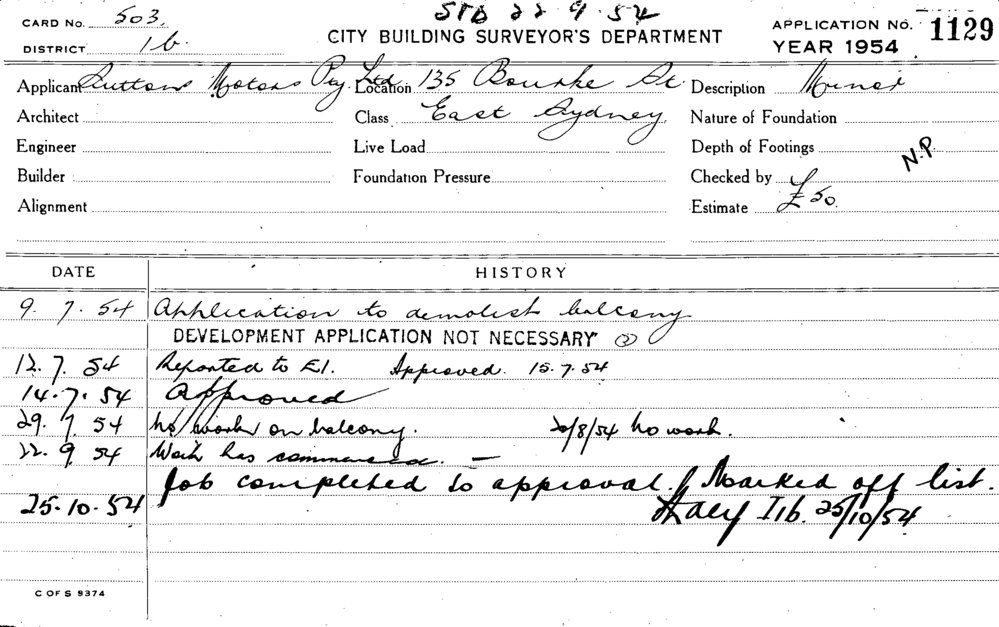 CARD No. 503. STD 22.9.54 APPLICATION No. 1129
DISTRICT 1b. CITY BUILDING SURVEYOR'S DEPARTMENT YEAR 1954
Applicant Suttons Motors Pty Ltd. Location 135 Bourke St Description Minor
Architect Class East Sydney Nature of Foundation
Engineer Live Load Depth of Footings N.P.
Builder Foundation Pressure Checked by
Alignment Estimate £50.
DATE HISTORY
9. 7. 54 Application to demolish balcony
DEVELOPMENT APPLICATION NOT NECESSARY
12. 7. 54 Reported to E1. Approved. 15.7.54
14.7.54 Approved
29. 7. 54 No work on balcony. 20/8/54 No work.
22. 9. 54 Work has commenced. —
Job completed to approval. Marked off list.
25.10.54 I1b. 25/10/54
C OF S 9374